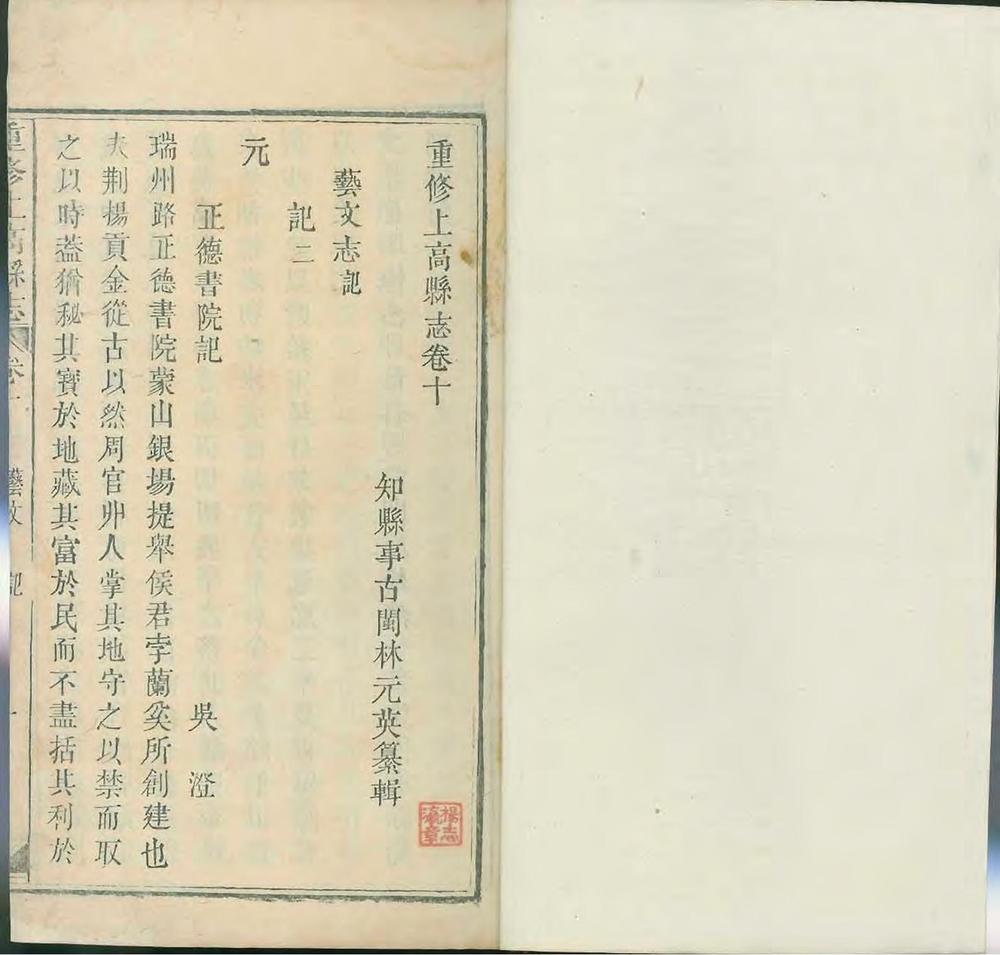 重修上高縣志卷十
知縣事古閩林元英纂輯
藝文志記
記三
元
正德書院記 吳澄
瑞州路正德書院蒙山銀場提舉侯君孛蘭奚所創建也
夫荆揚貢金從古以然周官丱人掌其地守之以禁而取
之以時葢猶秘其寶於地藏其富於民而不盡括其利於
重修上高縣志 卷十 藝文 記 一